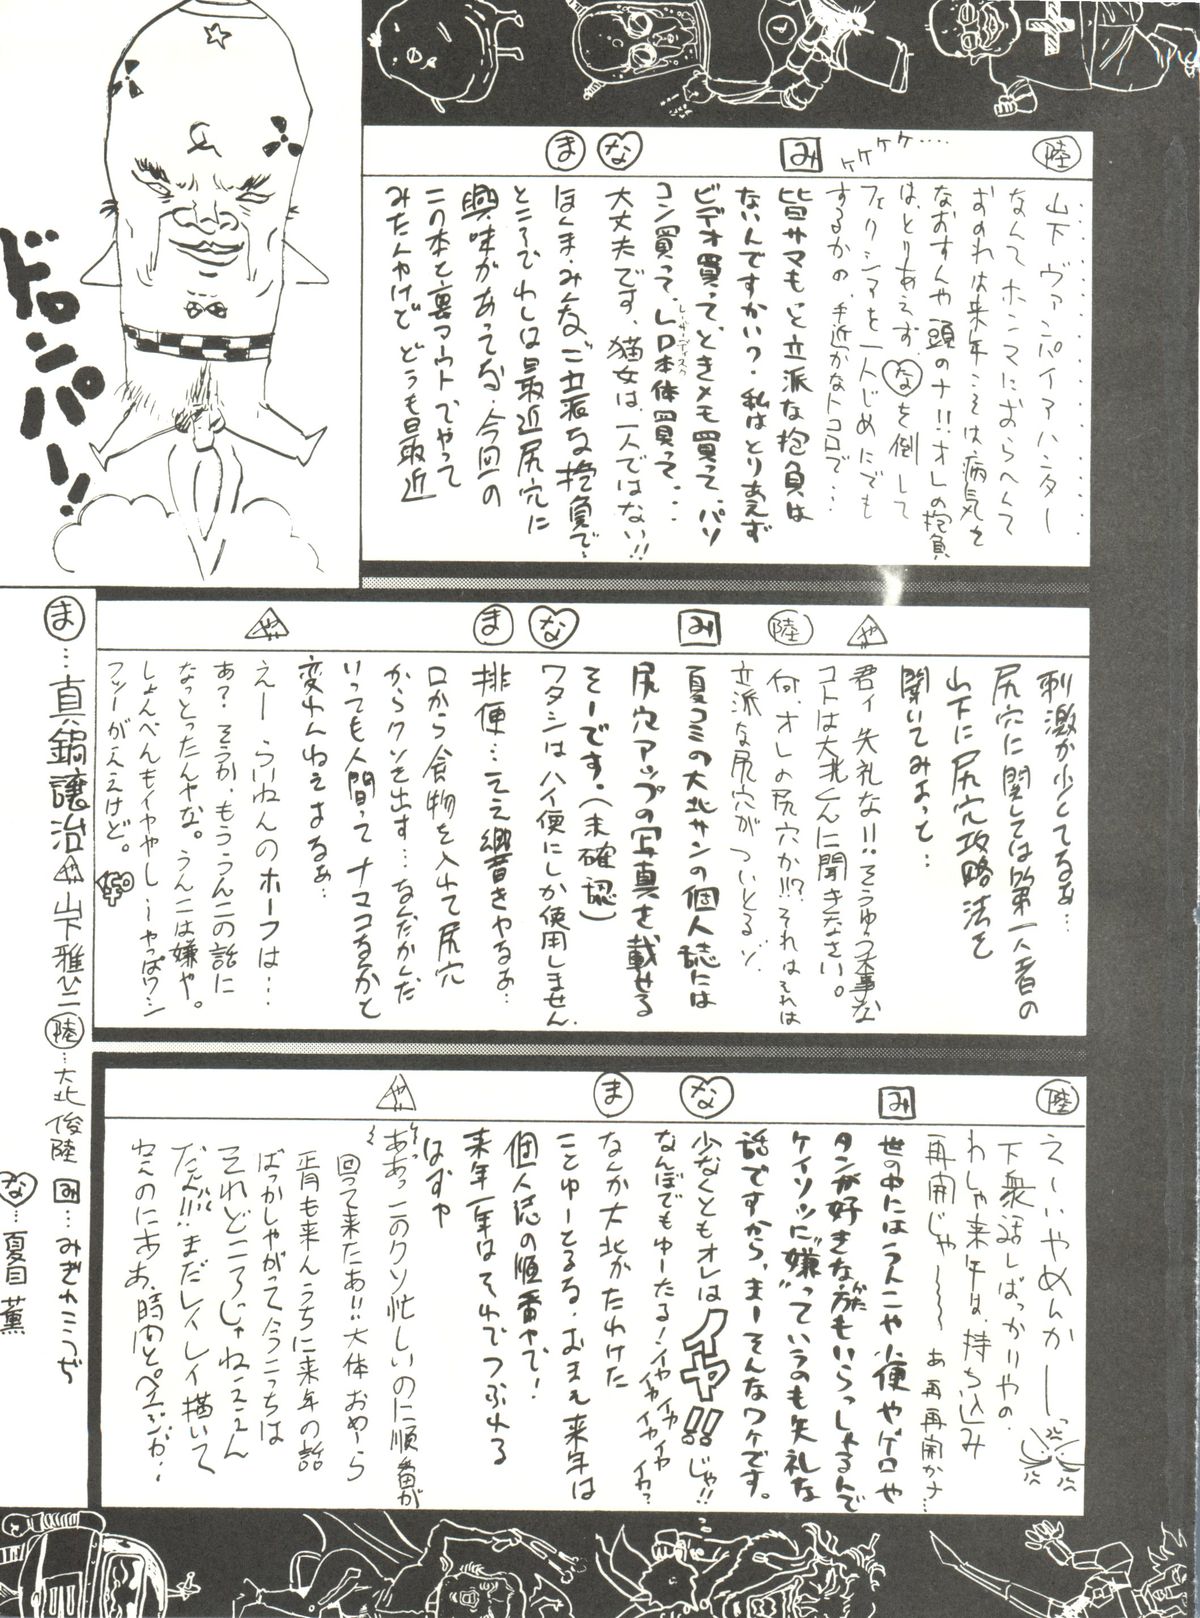 陸
山下‥ヴァンパイアハンター‥‥
なんてホンマにおらへんて
おのれは来年こそは病気を
なおすんや頭のナ!!オレの抱負
は、とりあえず、なを倒して
フェリシアを一人じめにでも
するかの、手近かなトコロで…
ケケケケ‥‥
み
皆サマもっと立派な抱負は
ないんですかい?私はとりあえず
ビデオ買って、ときメモ買って、パソ
コン買って、LD本体買って、…
レーザーディスク
な
大丈夫です、猫女は、一人ではない!!
ま
ほくま、みんなご立派な抱負で…
ところでわしは最近尻穴に
興味があってな、今回の
この本と裏マウトでやって
みたんやけどどうも最近
ドロンパー!!
刺激が少くてるぁ…
尻穴に関しては第一人者の
山下に尻穴攻略法を
聞いてみよっと…
や
君ィ失礼な!!そうゆう大事な
コトは大北くんに聞きなさい。
陸
何、オレの尻穴か!!?それはそれは
立派な尻穴がついとるゾ
み
夏コミの大北サンの個人誌には
尻穴アップの写真を載せる
そーです。(未確認)
な
ワタシはハイ便にしか使用しません
ま
排便…ええ響きやなぁ…
口から食物を入れて尻穴
からクソを出す…なんだかんだ
いっても人間ってナマコなかと
変わんねえなぁ…
や
えーらいねんのホーフは…
あ?そうか、もううんこの話に
なっとったんやな。うんこは嫌や。
しょんべんもイヤやし…やっぱワシ
フッーがええけど。
陸
え〜いやめんか〜っ
下衆話しばっかりやの
わしゃ来年は、持ち込み
再開じゃ〜〜〜あ再再開かナ…
み
世の中にはうんこや小便やゲロや
タンが好きな方もいらっしゃるんで
がた
ケイソツに"嫌"っていうのも失礼な
話ですから、まーそんなワケです。
な
少なくともオレはイヤ!!じゃ!!
なんぼでもゆーたる!イヤイヤイヤイヤイヤイヤイヤイカ?
ま
なんか大北がたわけた
ことゆーとるな、おまえ来年は
個人誌の順番やで!
来年一年はそれでつぶれる
はずや
や
ああっこのクソ忙しいのに順番が
回って来たぁ!!大体おめーら
正月も来んうちに来年の話
ばっかしやがって今こっちは
それどころじゃねえええん
だよ!!!まだレイレイ描いて
ねえのにああ、時間とページが‥
ま…真鍋譲治 や…山下雅ひこ 陸…大北俊陸 み…みぎわこうぢ
な…夏目薫